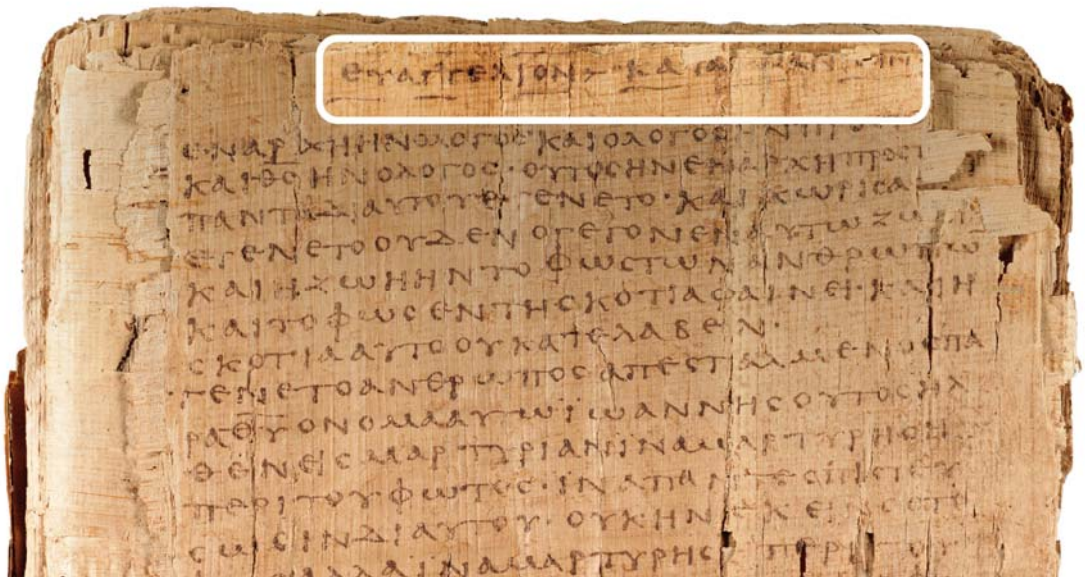 ΕΥΑΓΓΕΛΙΟΝ ΚΑΤΑ
ΕΝΑΡΧΗΗΝΟΛΟΓΟϹΚΑΙΟΛΟΓΟϹ
ΚΑΙΘ̅Ϲ̅ΗΝΟΛΟΓΟϹ·ΟΥΤΟϹΗΝΕΝΑΡΧΗΠΡΟϹ
ΠΑΝΤΑΔΙΑΥΤΟΥΕΓΕΝΕΤΟ·ΚΑΙΧΩΡΙϹΑ
ΕΓΕΝΕΤΟΟΥΔΕΝΟΓΕΓΟΝΕΝΑΥΤΩΖΩΗ
ΚΑΙΗΖΩΗΗΝΤΟΦΩϹΤΩΝΑΝΘΡΩΠΩ
ΚΑΙΤΟΦΩϹΕΝΤΗϹΚΟΤΙΑΦΑΙΝΕΙ·ΚΑΙΗ
ϹΚΟΤΙΑΑΥΤΟΟΥΚΑΤΕΛΑΒΕΝ·
ΕΓΕΝΕΤΟΑΝΘΡΩΠΟϹΑΠΕϹΤΑΛΜΕΝΟϹΠΑ
ΡΑΘ̅Υ̅ΟΝΟΜΑΑΥΤΩΙΩΑΝΝΗϹΟΥΤΟϹΗΛ
ΘΕΝΕΙϹΜΑΡΤΥΡΙΑΝΙΝΑΜΑΡΤΥΡΗϹΗ
ΠΕΡΙΤΟΥΦΩΤΟϹ·ΙΝΑΠΑΝΤΕϹΠΙϹΤΕΥ
ϹΩϹΙΝΔΙΑΥΤΟΥ·ΟΥΚΗΝΕΚΕΙΝΟϹΤΟ
ΑΛΛΑΙΝΑΜΑΡΤΥΡΗϹ ΠΕΡΙΤΟΥ